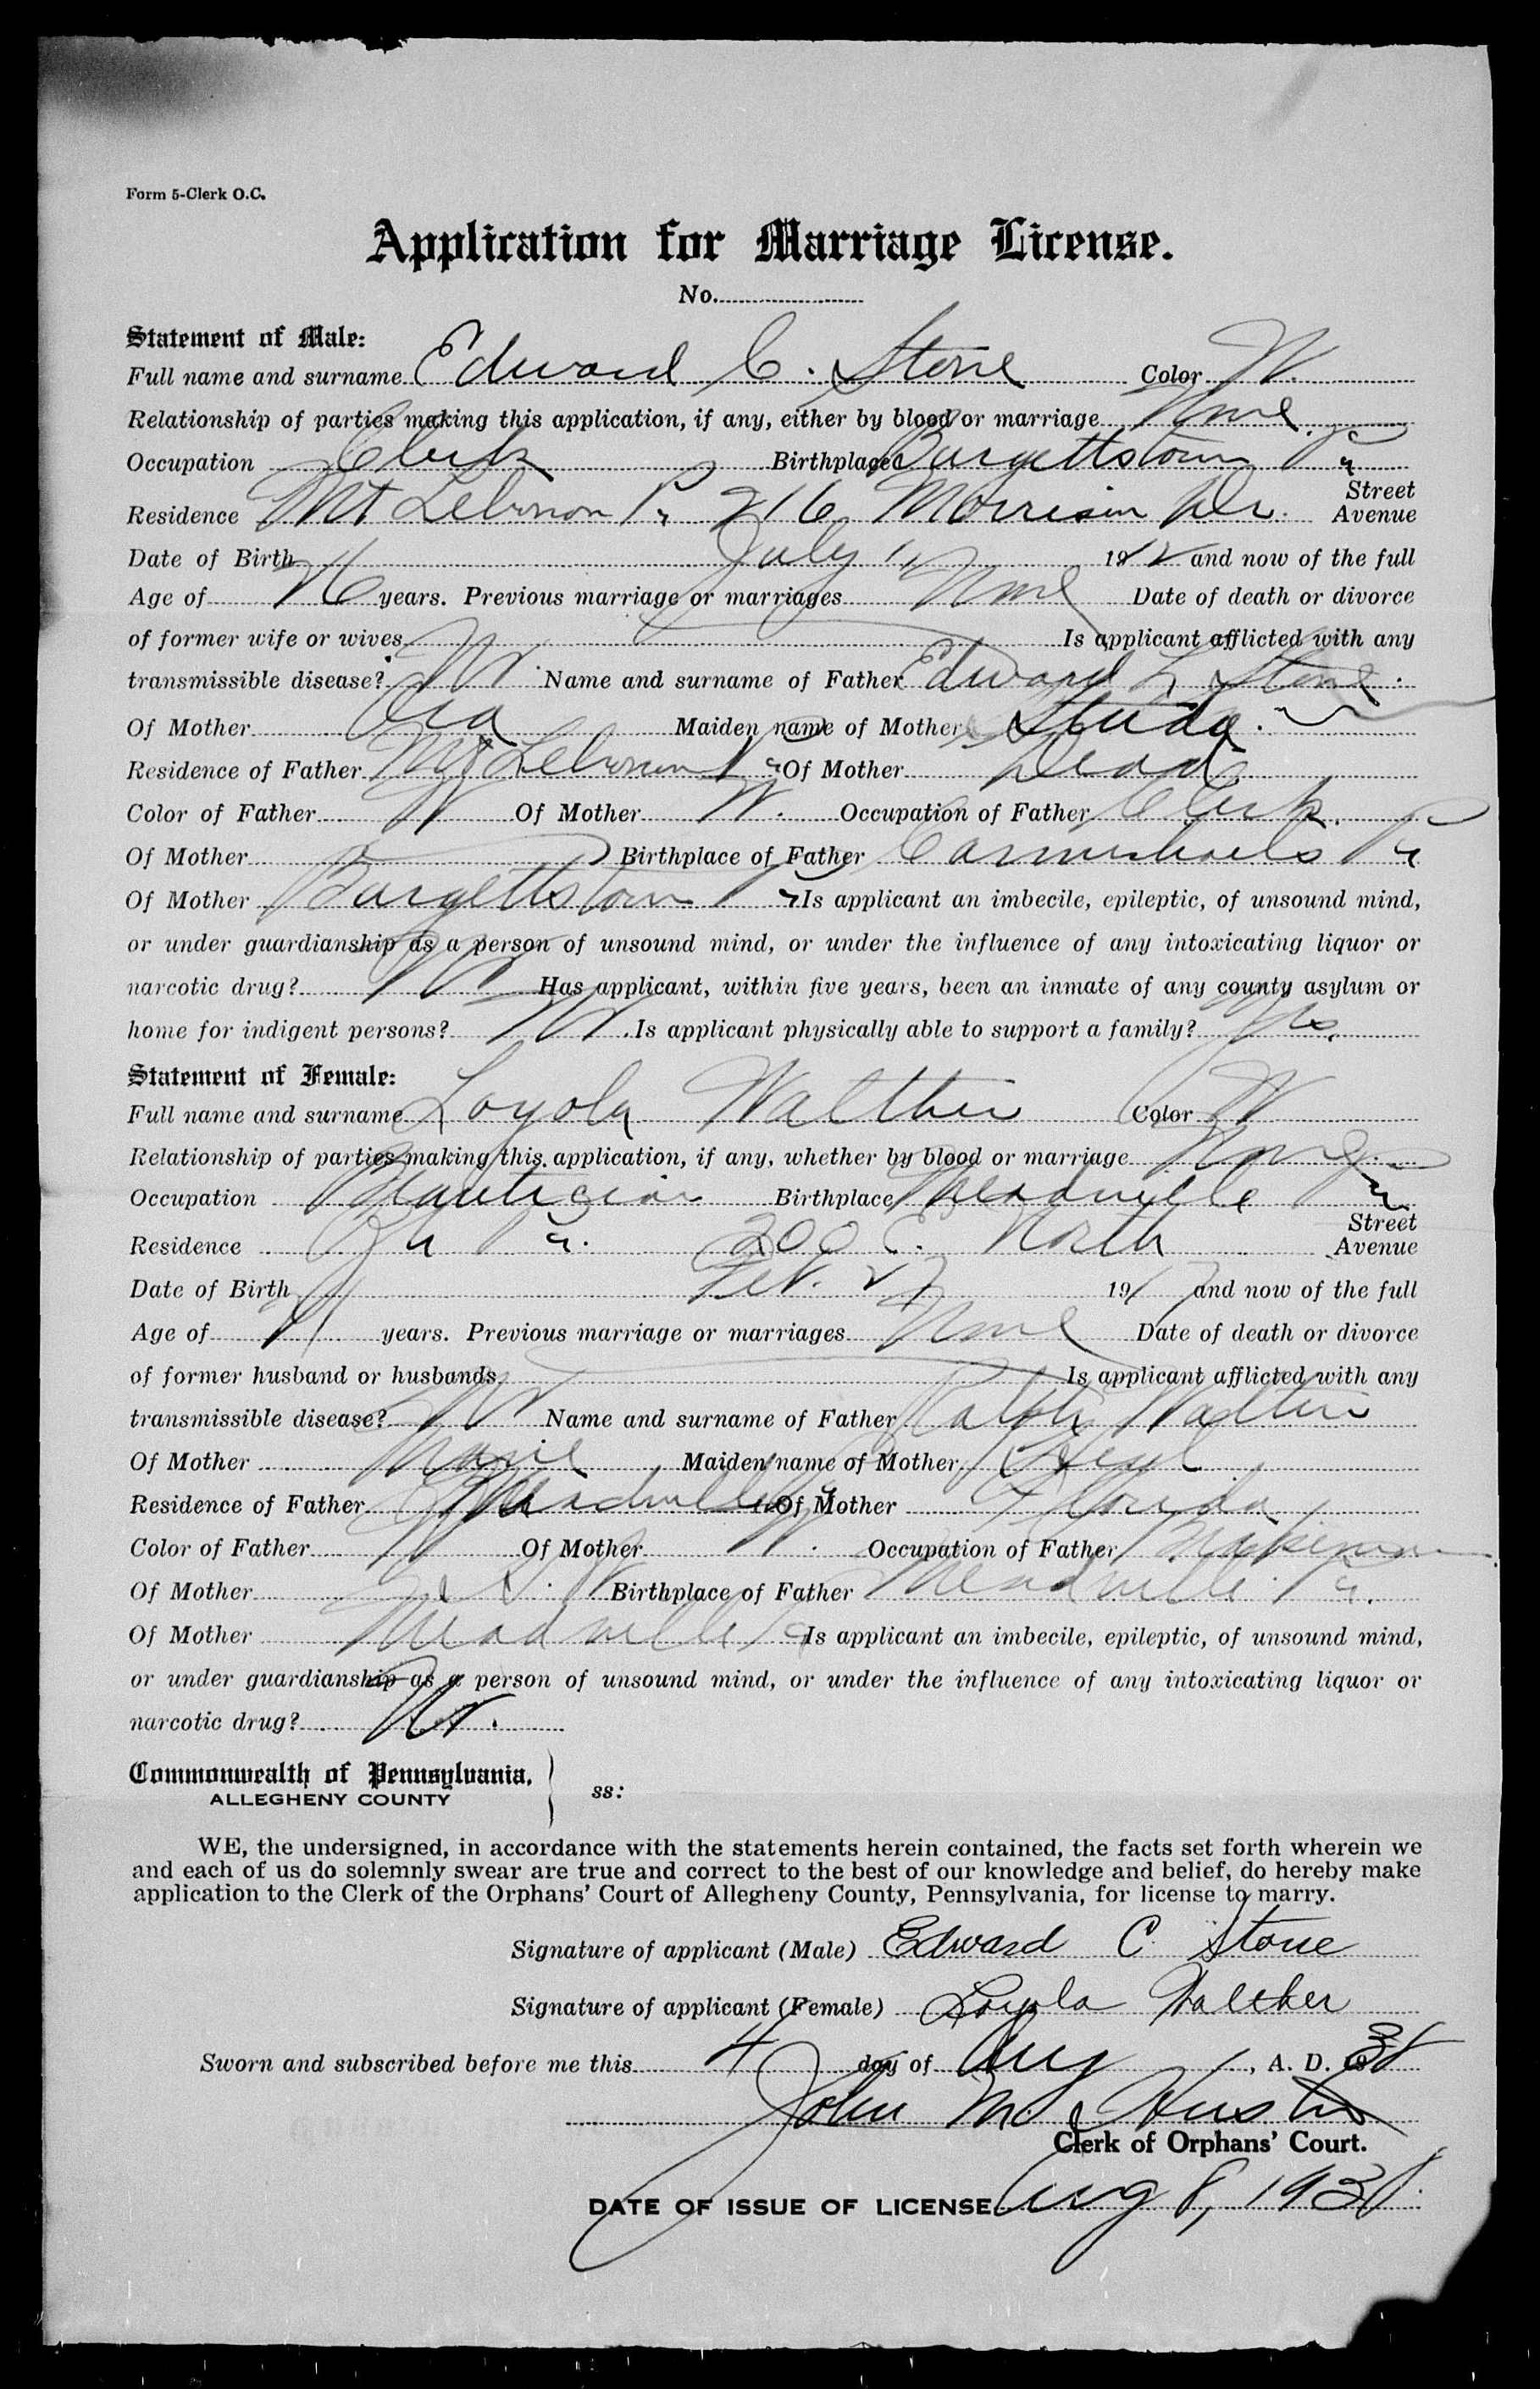 Form 5-Clerk O.C.
Application for Marriage License.
No.
Statement of Male:
Full name and surname Edward C. Stone Color W.
Relationship of parties making this application, if any, either by blood or marriage None.
Occupation Clerk Birthplace Burgettstown Pa
Street
Residence Mt Lebanon Pa 216 Morrison Dr. Avenue
Date of Birth July 11, 1912 and now of the full
Age of 26 years. Previous marriage or marriages None Date of death or divorce
of former wife or wives Is applicant afflicted with any
transmissible disease? No. Name and surname of Father Edward L Stone.
Of Mother Maiden name of Mother Studa.
Residence of Father Mt Lebanon Pa Of Mother Dead
Color of Father W Of Mother W. Occupation of Father Clerk.
Of Mother Birthplace of Father Carmichaels Pa
Of Mother Burgettstown Pa Is applicant an imbecile, epileptic, of unsound mind,
or under guardianship as a person of unsound mind, or under the influence of any intoxicating liquor or
narcotic drug? No Has applicant, within five years, been an inmate of any county asylum or
home for indigent persons? No. Is applicant physically able to support a family? Yes.
Statement of Female:
Full name and surname Loyola Walther Color W
Relationship of parties making this application, if any, whether by blood or marriage None.
Occupation Beautician Birthplace Meadville Pa
Street
Residence Pa. 200 E. North Avenue
Date of Birth Feb. 27 1917 and now of the full
Age of 21 years. Previous marriage or marriages None Date of death or divorce
of former husband or husbands Is applicant afflicted with any
transmissible disease? No Name and surname of Father Ralph Walther
Of Mother Marie Maiden name of Mother
Residence of Father Meadville Pa Of Mother Florida
Color of Father W Of Mother W. Occupation of Father
Of Mother Birthplace of Father Meadville Pa.
Of Mother Meadville Pa Is applicant an imbecile, epileptic, of unsound mind,
or under guardianship as a person of unsound mind, or under the influence of any intoxicating liquor or
narcotic drug? No.
Commonwealth of Pennsylvania,
ALLEGHENY COUNTY ss:
WE, the undersigned, in accordance with the statements herein contained, the facts set forth wherein we
and each of us do solemnly swear are true and correct to the best of our knowledge and belief, do hereby make
application to the Clerk of the Orphans' Court of Allegheny County, Pennsylvania, for license to marry.
Signature of applicant (Male) Edward C. Stone
Signature of applicant (Female) Loyola Walther
Sworn and subscribed before me this 4 day of Aug, A. D. 1938
John M. Huston
Clerk of Orphans' Court.
DATE OF ISSUE OF LICENSE Aug 8, 1938.